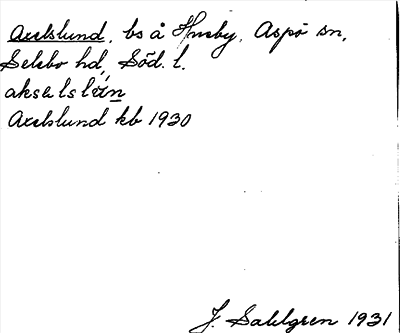 Axelslund, bs å Husby, Aspö sn,
Selebo hd, Söd. l.
Axelslund kb 1930
J. Sahlgren 1931